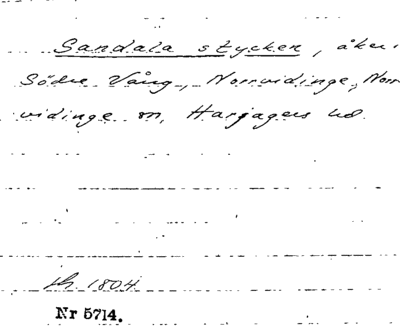 Sandala stycken, åker i
Södre Vång, Norrvidinge, Norr
vidinge sn, Harjagers hd.
1804
Nr 5714.